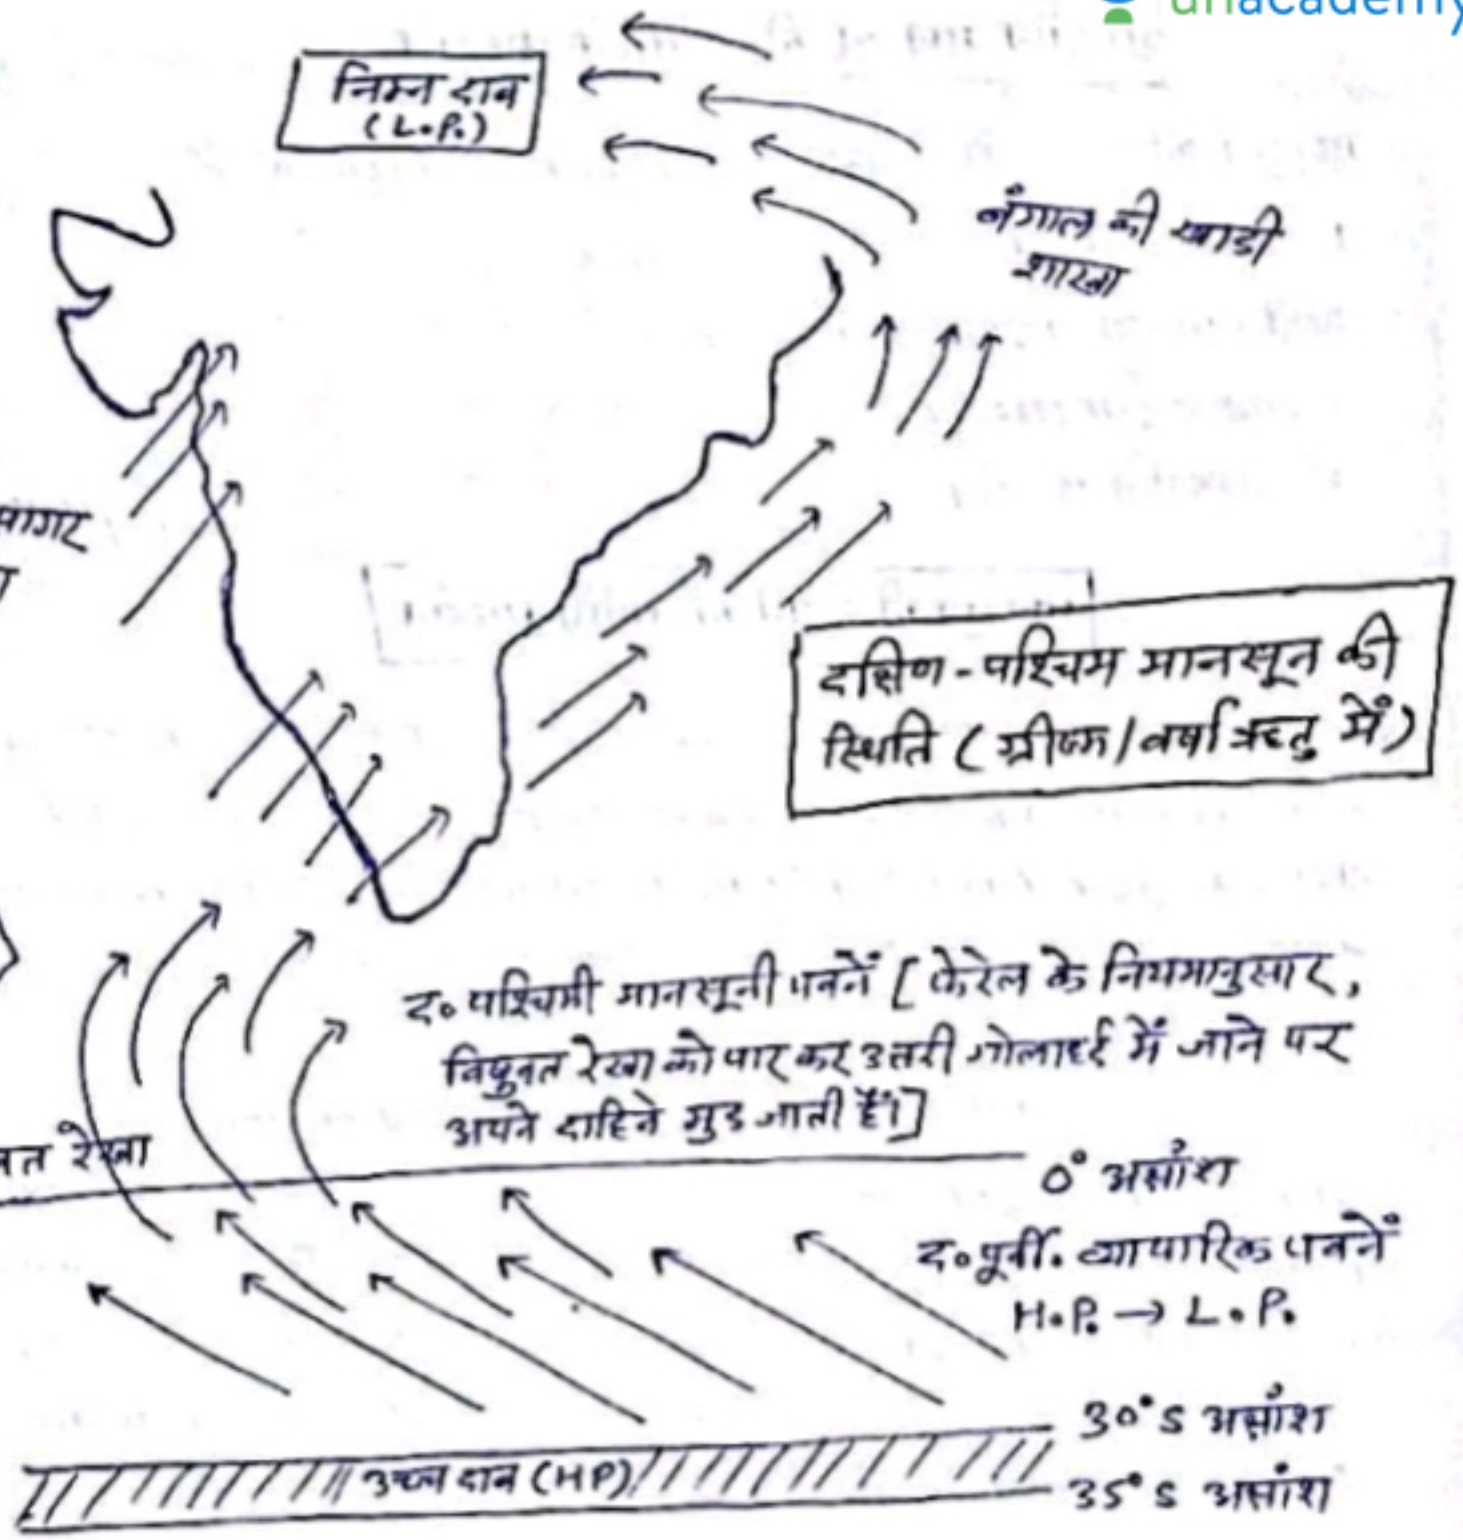 unacademy
निम्न दाब
(L.P.)
बंगाल की खाडी
शाखा
सागर
दक्षिण-पश्चिम मानसून की
स्थिति (ग्रीष्म/वर्षा ऋतु में)
द० पश्चिमी मानसूनी पवनें [फेरेल के नियमानुसार,
विषुवत रेखा को पार कर उत्तरी गोलार्द्ध में जाने पर
अपने दाहिने मुड जाती हैं।]
वत रेखा
0° अक्षांश
द०पूर्वी. व्यापारिक पवनें
H.P. → L.P.
30°S अक्षांश
उच्च दाब (HP)
35°S अक्षांश